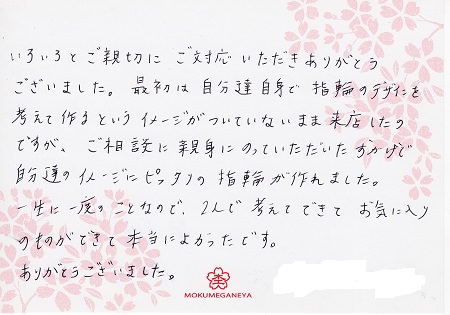 いろいろとご親切に ご対応いただきありがとう
ございました。最初は自分達自身で指輪のデザインを
考えて作るというイメージがついていないまま来店したの
ですが、ご相談に親身にのっていただいたおかげで
自分達のイメージにピッタリの指輪が作れました。
一生に一度のことなので、2人で考えてできて お気に入り
のものができて本当によかったです。
ありがとうございました。
MOKUMEGANEYA